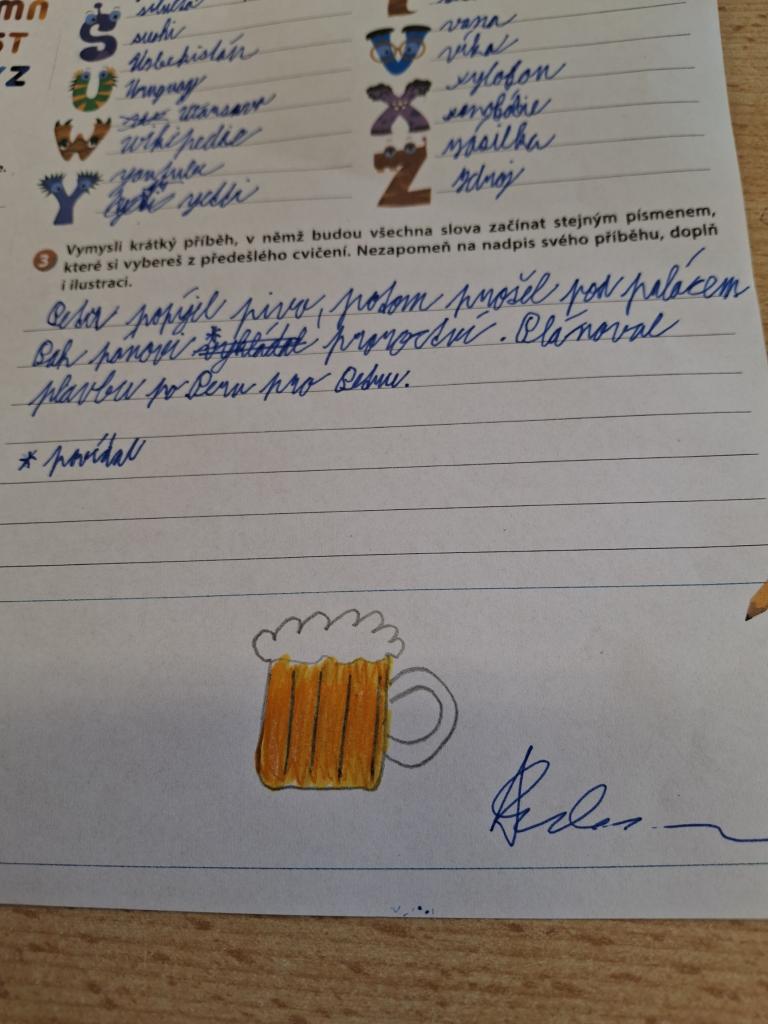 S
sushi
Uzbekistán
U
Uruguay
W
wikipedie
Y
yetti
vana
V
víka
xylofon
X
xenofobie
Z
zásilka
zdroj
ST
YZ
3 Vymysli krátký příběh, v němž budou všechna slova začínat stejným písmenem,
které si vybereš z předešlého cvičení. Nezapomeň na nadpis svého příběhu, doplň
i ilustraci.
Petr popíjel pivo, potom prošel pod palácem
Pak panovi * proroctví. Plánoval
plavbu po Peru pro Petru.
* povídal